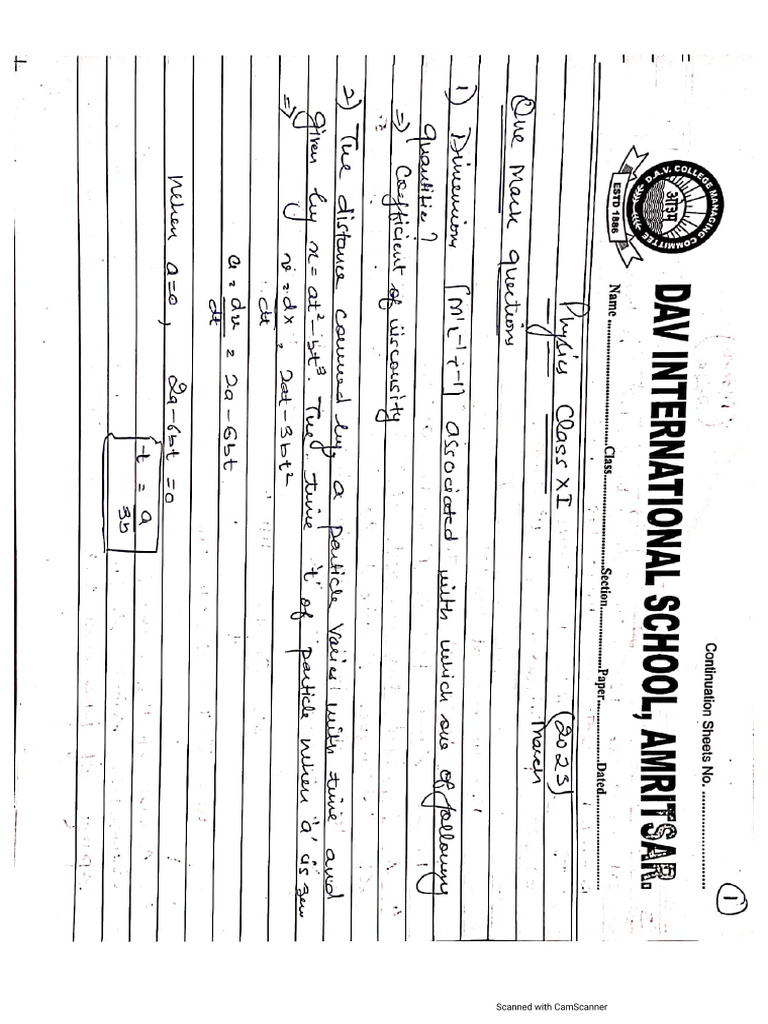 Continuation Sheets No. ....................
1
DAV INTERNATIONAL SCHOOL, AMRITSAR.
D.A.V. COLLEGE MANAGING COMMITTEE
ओ३म्
ESTD 1886
Name ....................Class....................Section....................Paper....................Dated....................
Physics Class XI (2023)
March
One Mark questions
1) Dimensions [M¹L⁻¹T⁻¹] associated with which one of following
quantities?
=> Coefficient of viscousity
2) The distance covered by a particle varies with time and
given by x = at² - bt³. The time 't' of particle when 'a' is zero
=> v = dx/dt = 2at - 3bt²
a = dv/dt = 2a - 6bt
when a=0, 2a - 6bt = 0
t = a/3b
Scanned with CamScanner